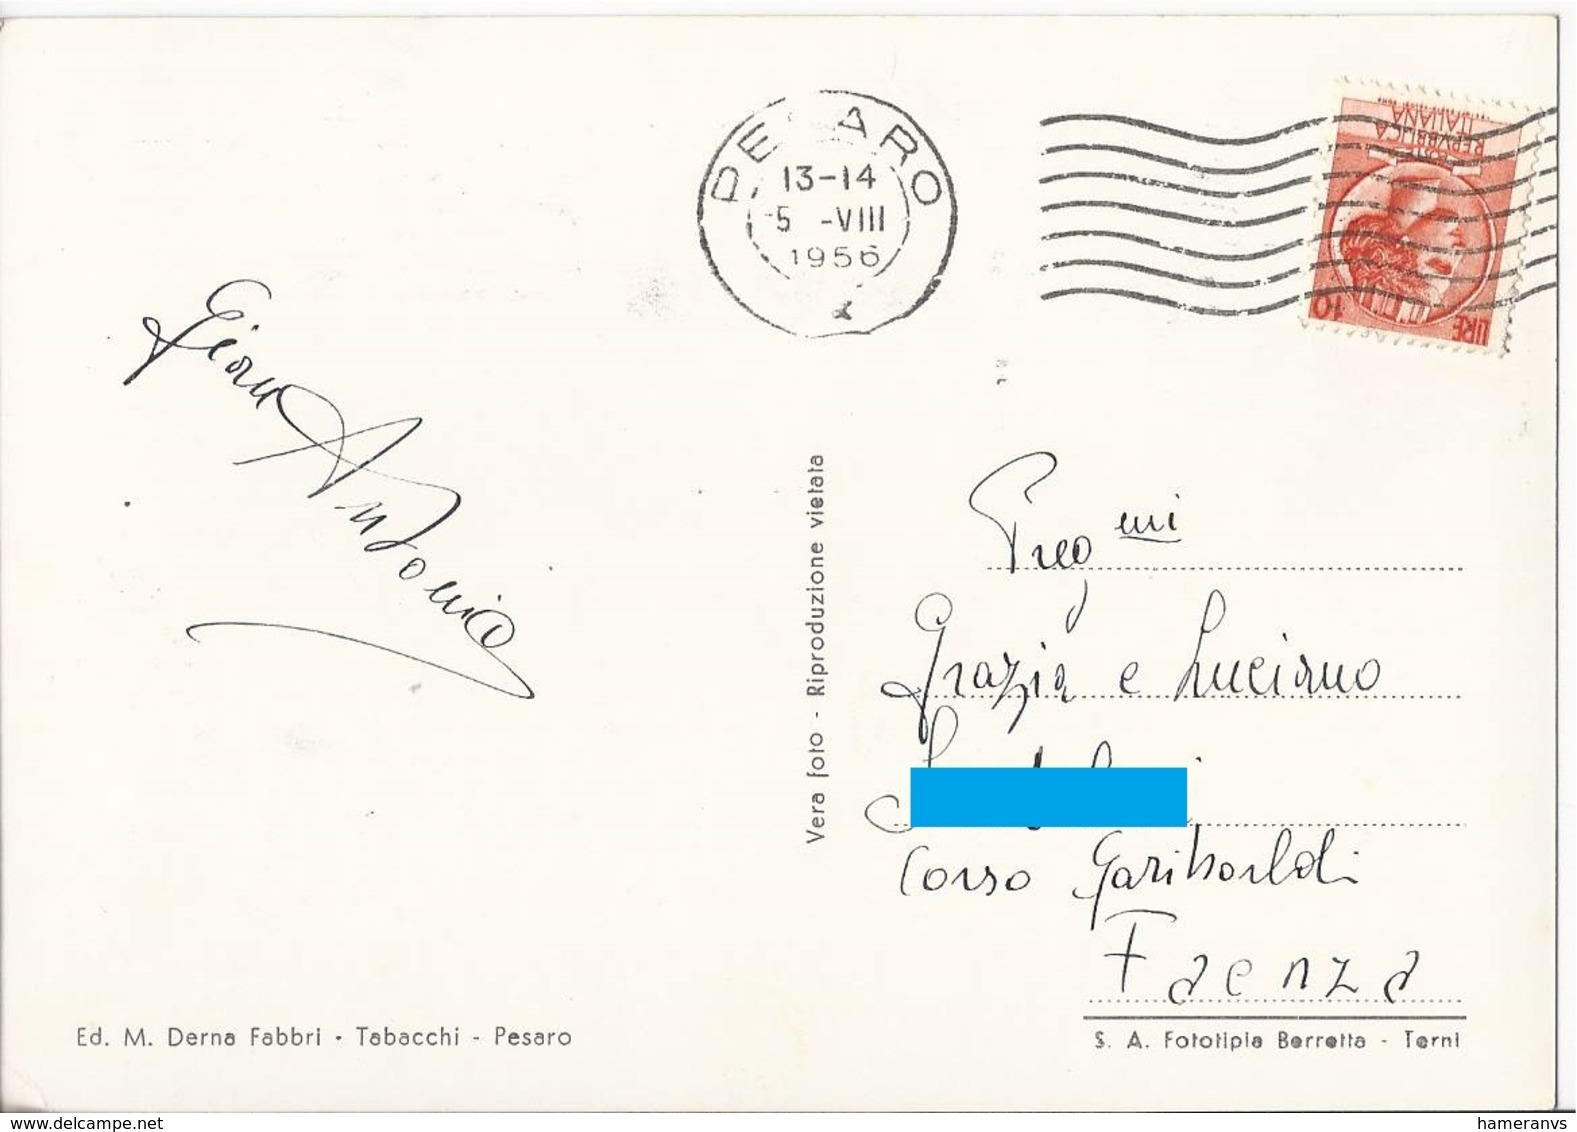 PESARO
13-14
5 -VIII
1956
POSTE
REPVBBLICA
ITALIANA
LIRE 10
Gian Antonio
Preg mi
Grazia e Luciano
Corso Garibaldi
Faenza
Vera foto - Riproduzione vietata
Ed. M. Derna Fabbri • Tabacchi - Pesaro
S. A. Fototipia Berretta - Terni
www.delcampe.net
hameranvs